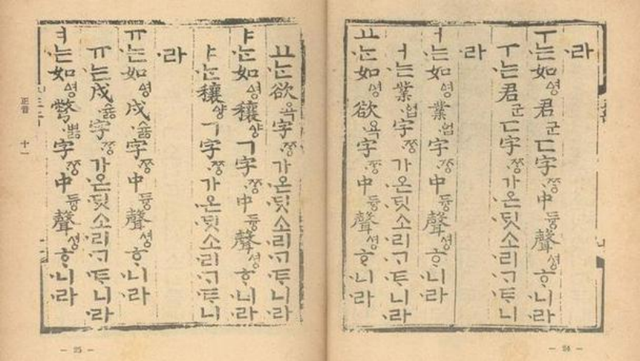 라
ㅜ는如ᅀᅧᆼ君군ㄷ字ᄍᆞᆼ中듀ᇰ聲셔ᇰᄒᆞ니라
ㅜ는君군ㄷ字ᄍᆞᆼ가온ᄃᆡᆺ소리ᄀᆞᄐᆞ니
라
ㅓ는如ᅀᅧᆼ業업字ᄍᆞᆼ中듀ᇰ聲셔ᇰᄒᆞ니라
ㅓ는業업字ᄍᆞᆼ가온ᄃᆡᆺ소리ᄀᆞᄐᆞ니라
ㅛᄂᆞᆫ如ᅀᅧᆼ欲욕字ᄍᆞᆼ中듀ᇰ聲셔ᇰᄒᆞ니라
— 24 —
ㅛᄂᆞᆫ欲욕字ᄍᆞᆼ가온ᄃᆡᆺ소리ᄀᆞᄐᆞ니라
ㅑᄂᆞᆫ如ᅀᅧᆼ穰ᅀᅣᇰㄱ字ᄍᆞᆼ中듀ᇰ聲셔ᇰᄒᆞ니라
ㅑᄂᆞᆫ穰ᅀᅣᇰㄱ字ᄍᆞᆼ가온ᄃᆡᆺ소리ᄀᆞᄐᆞ니
라
ㅠ는如ᅀᅧᆼ戌슗字ᄍᆞᆼ中듀ᇰ聲셔ᇰᄒᆞ니라
ㅠ는戌슗字ᄍᆞᆼ가온ᄃᆡᆺ소리ᄀᆞᄐᆞ니라
ㅕ는如ᅀᅧᆼ彆볋字ᄍᆞᆼ中듀ᇰ聲셔ᇰᄒᆞ니라
正音 十一
— 25 —